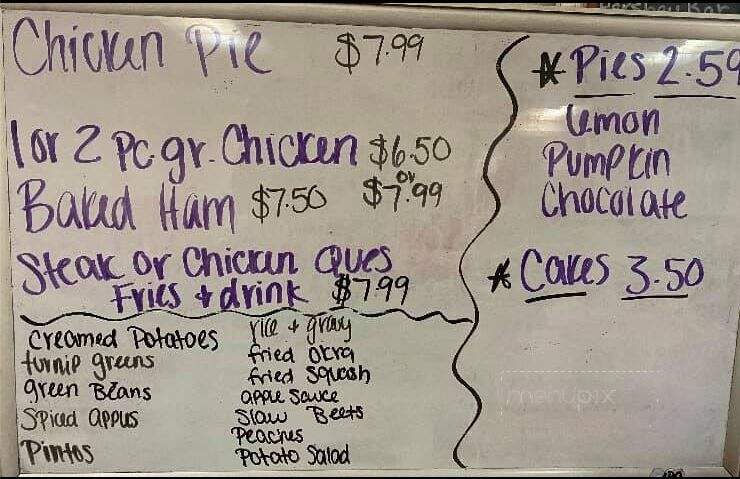 Chicken Pie $7.99
1 or 2 Pc. gr. Chicken $6.50
or
Baked Ham $7.50 $7.99
Steak or Chicken Ques
Fries + drink $7.99
creamed Potatoes
turnip greens
green Beans
Spiced apples
Pintos
rice + gravy
fried okra
fried Squash
apple Sauce
Slaw Beets
Peaches
Potato Salad
* Pies 2.59
lemon
Pumpkin
Chocolate
* Cakes 3.50
menupix